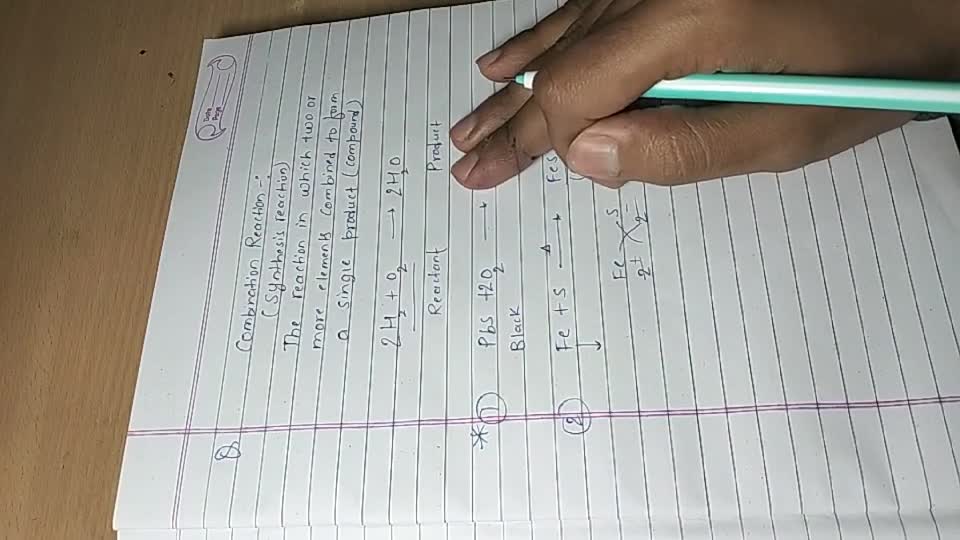 Date
Page
Q Combination Reaction :-
(Synthesis reaction)
The reaction in which two or
more elements combined to form
a single product (compound)
2H₂ + O₂ → 2H₂O
Reactant Product
* (1) Pbs + 2O₂ →
Black
(2) Fe + S →Δ Fes
Fe S
2+ 2-